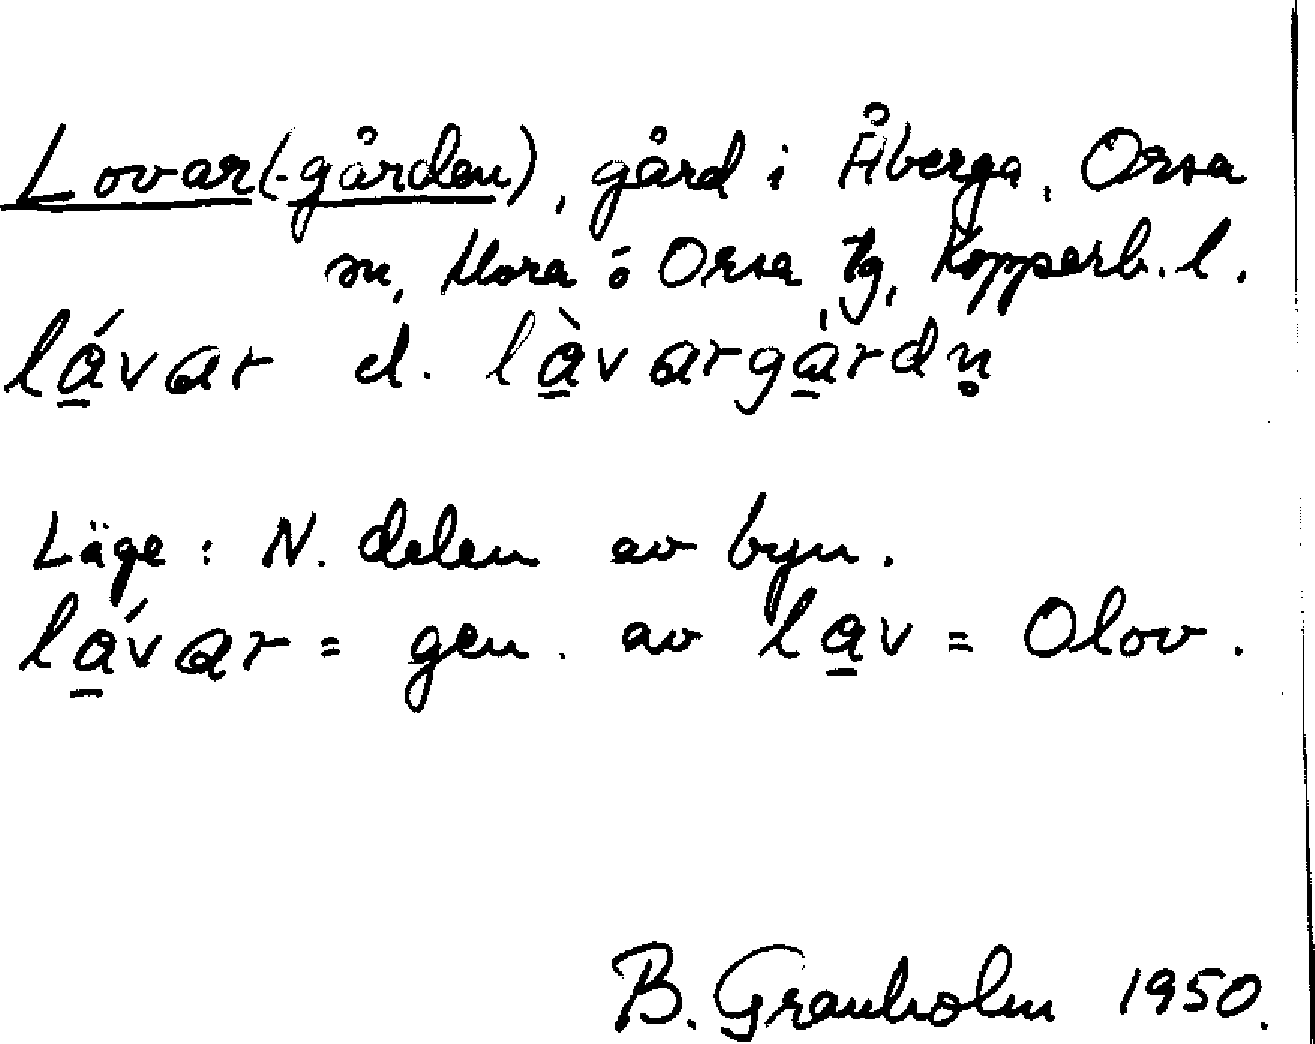 Lovar(-gården), gård i Åberga, Orsa
sn, Mora o Orsa tg, Kopparb. l.
lá̱var el. là̱vargà̱rdn̥
Läge: N. delen av byn.
lá̱var = gen. av la̱v = Olov.
B. Granholm 1950.